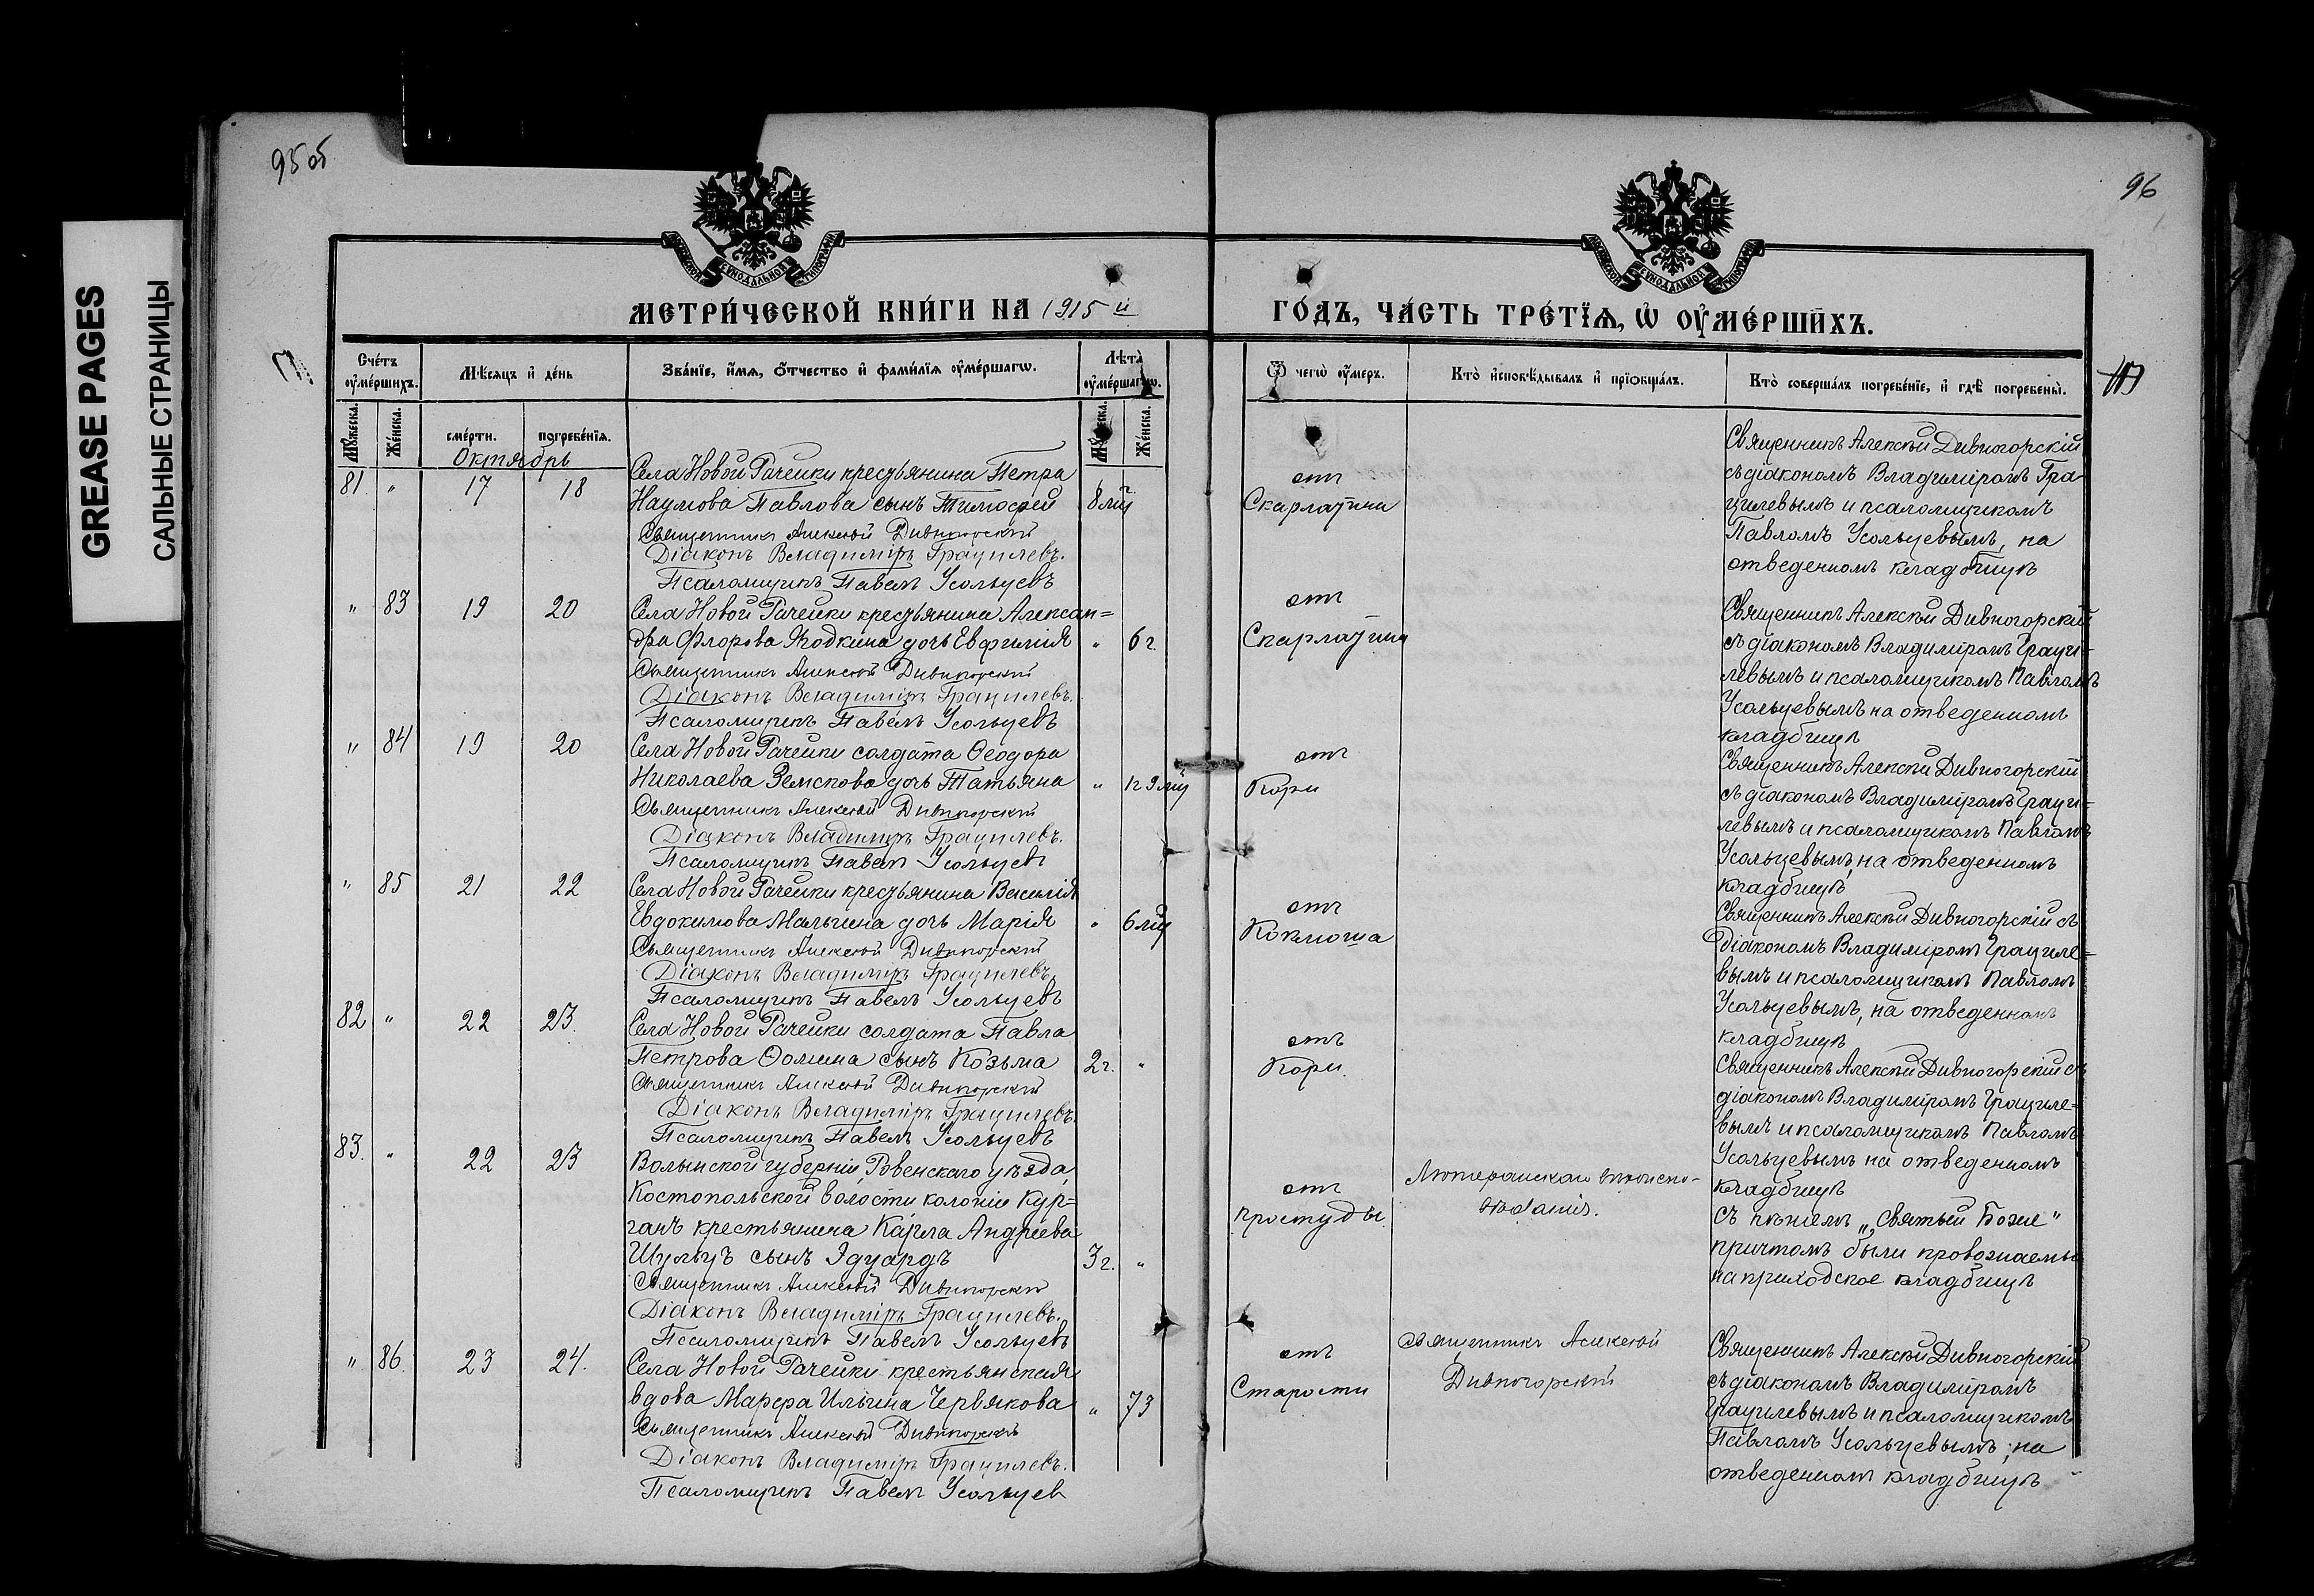 95 об
96
GREASE PAGES
САЛЬНЫЕ СТРАНИЦЫ
МЕТРИ́ЧЕСКОЙ КНИ́ГИ НА 1915 й
ГО́ДЪ, ЧА́СТЬ ТРЕ́ТЇѦ, Ѡ҆ ОУ҆МЕ́РШИХЪ.
Сче́тъ оу҆ме́ршихъ.
Мѣ́сяцъ и҆ де́нь
Зва́нїе, и҆́мѧ, ѻ҆́тчество и҆ фамилїѧ оу҆ме́ршагѡ.
Лѣ́та оу҆ме́ршагѡ.
Ѿ чегѡ̀ оу҆́меръ.
Кто̀ и҆сповѣ́дывалъ и҆ прїѻбща́лъ.
Кто̀ соверша́лъ погребе́нїе, и҆ гдѣ̀ погребены̀.
Мꙋ́жеска.
Же́нска.
сме́рти.
погребе́нїѧ.
Мꙋ́жеска.
Же́нска.
Октябрь
81. " 17 18
Села Новой Рачейки крестьянина Петра
Наумова Павлова сынъ Тимофей 8 мц
Священникъ Алексей Дивногорский
Діаконъ Владиміръ Грацилевъ.
Псаломщикъ Павелъ Усольцевъ
отъ
Скарлатина
Священникъ Алексѣй Дивногорскій
съ діакономъ Владиміромъ Гра
цилевымъ и псаломщикомъ
Павломъ Усольцевымъ, на
отведенномъ кладбищѣ
" 83 19 20
Села Новой Рачейки крестьянина Алексан=
дра Флорова Ягодкина дочь Евфимія " 6 г.
Священникъ Алексей Дивногорский
Діаконъ Владиміръ Грацилевъ.
Псаломщикъ Павелъ Усольцевъ
отъ
Скарлатина
Священникъ Алексѣй Дивногорскій
съ діакономъ Владиміромъ Граци=
левымъ и псаломщикомъ Павломъ
Усольцевымъ на отведенномъ
кладбищѣ
" 84 19 20
Села Новой Рачейки солдата Ѳеодора
Николаева Земскова дочь Татьяна " 1 г 9 мц
Священникъ Алексей Дивногорский
Діаконъ Владиміръ Грацилевъ.
Псаломщикъ Павелъ Усольцевъ
отъ
Кори
Священникъ Алексѣй Дивногорскій
съ діакономъ Владиміромъ Граци=
левымъ и псаломщикомъ Павломъ
Усольцевымъ, на отведенномъ
кладбищѣ
" 85 21 22
Села Новой Рачейки крестьянина Василія
Евдокимова Малыгина дочь Марія " 6 мц
Священникъ Алексей Дивногорский
Діаконъ Владиміръ Грацилевъ.
Псаломщикъ Павелъ Усольцевъ
отъ
Коклюша
Священникъ Алексѣй Дивногорскій съ
діакономъ Владиміромъ Грациле=
вымъ и псаломщикомъ Павломъ
Усольцевымъ, на отведенномъ
кладбищѣ
82 " 22 23.
Села Новой Рачейки солдата Павла
Петрова Ѳомина сынъ Козьма 2 г. "
Священникъ Алексей Дивногорский
Діаконъ Владиміръ Грацилевъ.
Псаломщикъ Павелъ Усольцевъ
отъ
Кори.
Священникъ Алексѣй Дивногорскій съ
діакономъ Владиміромъ Грациле=
вымъ и псаломщикомъ Павломъ
Усольцевымъ на отведенномъ
кладбищѣ
83. " 22 23
Волынской губерніи, Ровенскаго уѣзда,
Костопольской волости колоніи Кур=
ганъ крестьянина Карла Андреева
Шульцъ сынъ Эдуардъ 3 г. "
Священникъ Алексей Дивногорский
Діаконъ Владиміръ Грацилевъ.
Псаломщикъ Павелъ Усольцевъ
отъ
простуды.
Лютеранскаго вѣроиспо-
вѣданія.
съ пѣніемъ „Святый Боже"
причтомъ были провожаемы
на приходское кладбищѣ
" 86. 23 24.
Села Новой Рачейки крестьянская
вдова Марфа Ильина Червякова " 73
Священникъ Алексей Дивногорский
Діаконъ Владиміръ Грацилевъ.
Псаломщикъ Павелъ Усольцев
отъ
Старости
Священникъ Алексей
Дивногорский
Священникъ Алексѣй Дивногорскій
съ діакономъ Владиміромъ
Грацилевымъ и псаломщикомъ
Павломъ Усольцевымъ, на
отведенномъ кладбищѣ